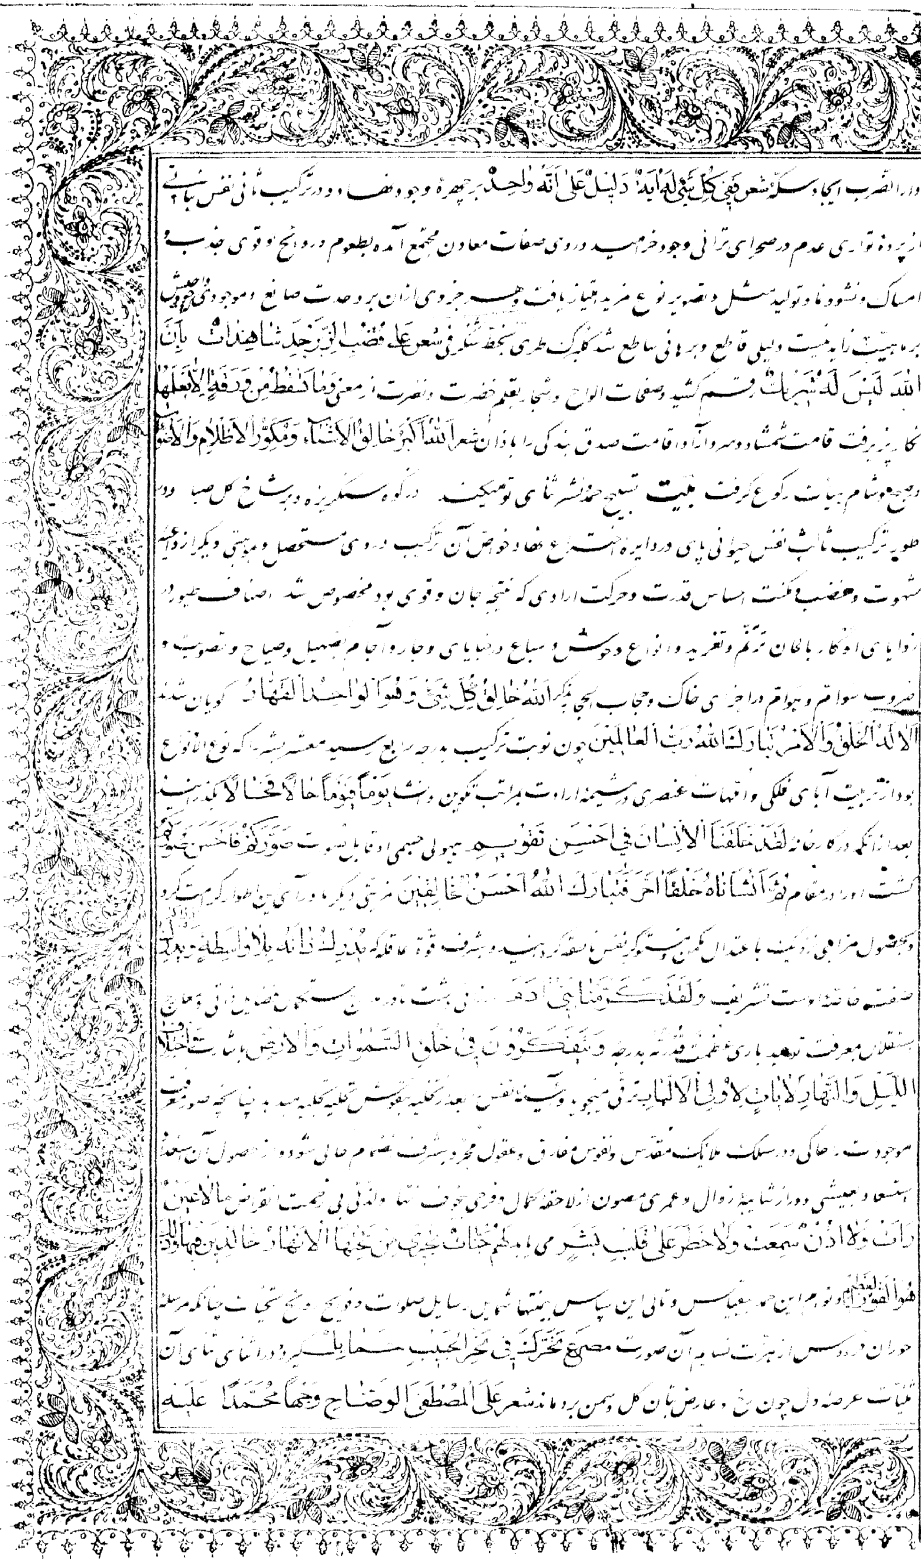 دارالضرب ایجاد سکهٔ شعر فَفِي كُلِّ شَيْءٍ لَهُ آيَةٌ دَلِيلٌ عَلَى أَنَّهُ وَاحِدٌ بر چهرهٔ وجود نهاد و در ترکیب ثانی نفس نباتی
از پردهٔ تواری عدم در صحرای ترائی وجود خرامید در وی صفات معادن مجتمع آمده بطعوم و روائح و قوی جذب و
امساک و نشو و نما و تولید مثل و تصویر نوع مزید امتیاز یافت و هر جزوی ازان بر وحدت صانع و موجودی
دلیلی قاطع و برهانی ساطع شد گلبرگ طری بخط شنگرفی شعر عَلَى قُضُبِ الزَّبَرْجَدِ شَاهِدَاتٌ بِأَنَّ
اللهَ لَيْسَ لَهُ شَرِيكٌ رقم کشید و صفحات الواح اشجار بقلم خضرت و نضرت از معنی وَمَا تَسْقُطُ مِنْ وَرَقَةٍ إِلَّا يَعْلَمُهَا
نگارپذیر رفت قامت شمشاد و سرو آزاد اقامت صدق بندگی را باذان شعر اللهُ أَكْبَرُ خَالِقُ الْأَشْيَاءِ وَمُكَوِّرُ الْإِظْلَامِ وَالْأَضْوَاءِ
و صبح و شام بیات رکوع گرفت بیت تسبیح حمد نشر ثنای تو میکنند در کوه سنگریزه و بر شاخ گل صبا
ترکیب ثالث نفس حیوانی پای در دایرهٔ اختراع نهاد و خواص آن ترکیب در وی مستحصل و مبتنی دیگر از داعیه
شهوت و غضب و مکنت احساس قدرت و حرکت ارادی که نتیجهٔ جان و قوی بود مخصوص شد اصناف طیور در
زوایای اوکار بالحان ترنم و تغرید و انواع وحوش و سباع در خبایای وجار و آجام بصهیل و صیاح و تصویت و
ضروب سوام و هوام در اجزای خاک و حجاب احجار بذکر اللهُ خَالِقُ كُلِّ شَيْءٍ وَهُوَ الْوَاحِدُ الْقَهَّارُ گویان شدند
أَلَا لَهُ الْخَلْقُ وَالْأَمْرُ تَبَارَكَ اللهُ رَبُّ الْعَالَمِينَ چون نوبت ترکیب بدرجهٔ رابع رسید معشر بشر را که نوع الانواع
بود از تربیت آبای فلکی و امهات عنصری در مشیمهٔ ارادت مراتب تکوین و نشا يَوْمًا فَيَوْمًا حَالًا فَحَالًا بگذرانید
بعد ازانکه در کارخانهٔ لَقَدْ خَلَقْنَا الْإِنْسَانَ فِي أَحْسَنِ تَقْوِيمٍ هیولی جسمی او قابل صورت صَوَّرَكُمْ فَأَحْسَنَ صُوَرَكُمْ
گشت او را در مقام ثُمَّ أَنْشَأْنَاهُ خَلْقًا آخَرَ فَتَبَارَكَ اللهُ أَحْسَنُ الْخَالِقِينَ مزیتی دیگر ماورای این اطوار کرامت کرد
و بحصول مزاجی نزدیک باعتدال ممکن مستوکر نفس ناطقه گردانید و بشرف قوهٔ عاقله که يُدْرِكُ ذَاتَهُ بِلَا وَاسِطَةٍ
صفت خاصهٔ اوست تشریف وَلَقَدْ كَرَّمْنَا بَنِي آدَمَ
معرفت توحید باری عظمت قدرته بدرجهٔ وَيَتَفَكَّرُونَ فِي خَلْقِ السَّمَوَاتِ وَالْأَرْضِ باشارت
اللَّيْلِ وَالنَّهَارِ لَآيَاتٍ لِأُولِي الْأَلْبَابِ ترقی میجوید و آینهٔ نفس بعد از تخلیه بنقوش تحلیه میدهد
موجودات در سلک ملایک مقدس و نفوس مفارق و عقول مجرد بشرف انضمام
و معیشتی دور از شایبهٔ زوال و عمری مصون از لاحقهٔ کمال و فرحی بی خوف تنها و لذتی بی تهمت انقراض مَا لَا عَيْنٌ
رَأَتْ وَلَا أُذُنٌ سَمِعَتْ وَلَا خَطَرَ عَلَى قَلْبِ بَشَرٍ می یابد لَهُمْ جَنَّاتٌ تَجْرِي مِنْ تَحْتِهَا الْأَنْهَارُ خَالِدِينَ فِيهَا وَذَلِكَ
هُوَ الْفَوْزُ الْعَظِيمُ و توأم این حمد بیقیاس و تالی این سپاس بیمنتها شمایل صلوات و فوایح روایح تحیات چنانکه مرسله
حوران فردوس از آن صورت مصرع تَحَرَّكَ فِي نَحْرِ الْحَبِيبِ و در اثنای ثنای آن
عرصهٔ دل چون رخ و عارض بتان گل و سمن بردماند شعر عَلَى الْمُصْطَفَى الْوَضَّاحِ وَجْهًا مُحَمَّدًا عَلَيْهِ